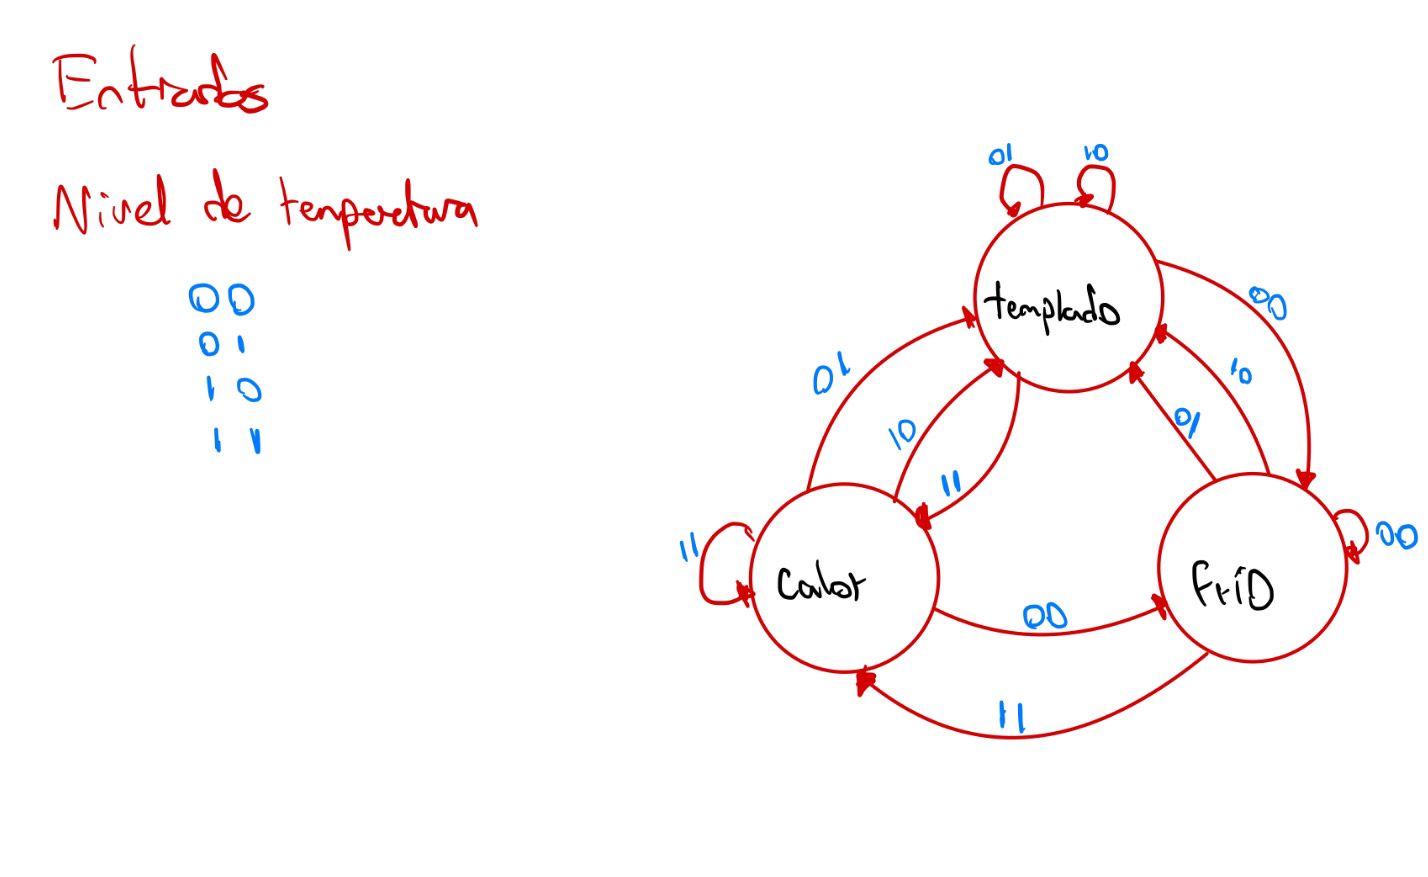 Entradas
Nivel de temperatura
00
01
10
11
01
10
templado
00
01
10
10
01
11
11
Calor
Frío
00
00
11